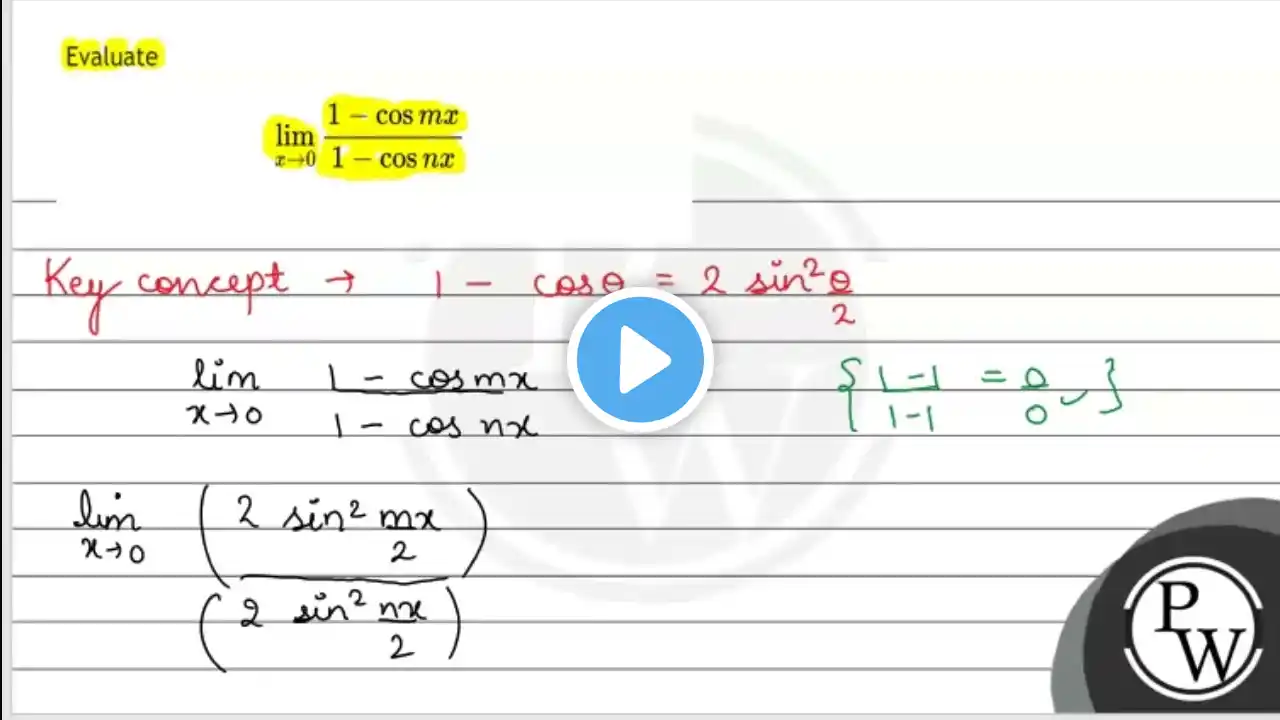 Evaluate
lim x→0 (1 − cos mx)/(1 − cos nx)
Key concept → 1 − cosθ = 2 sin² θ/2
lim x→0 (1 − cos mx)/(1 − cos nx) { (1−1)/(1−1) = 0/0 ✓ }
lim x→0 (2 sin² mx/2)/(2 sin² nx/2)
PW